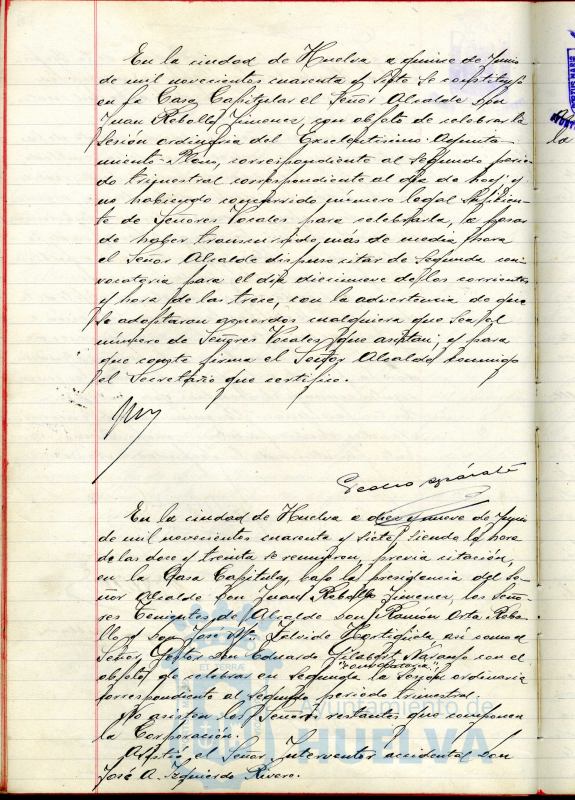 En la ciudad de Huelva a quince de Junio
de mil novecientos cuarenta y siete se constituyó
en la Casa Capitular el Señor Alcalde Don
Juan Rebollo Jimenez, con objeto de celebrar la
Sesión ordinaria del Excelentisimo Ayunta-
miento Pleno, correspondiente al segundo perio-
do trimestral correspondiente al dia de hoy; y
no habiendo concurrido número legal suficien-
te de Señores Vocales para celebrarla, a pesar
de haber transcurrido más de media hora
el Señor Alcalde dispuso citar de segunda con-
vocatoria para el dia diecinueve de los corrientes
y hora de las trece, con la advertencia de que
se adoptaran acuerdos cualquiera que sea el
número de Señores Vocales que asistan; y para
que conste firma el Señor Alcalde conmigo
el Secretario que certifico.
En la ciudad de Huelva a diez y nueve de Junio
de mil novecientos cuarenta y siete, siendo la hora
de las doce y treinta se reunieron, previa citación,
en la Casa Capitular, bajo la presidencia del Se-
ñor Alcalde Don Juan Rebollo Jimenez, los Seño-
res Tenientes de Alcalde don Ramón Orta Rebo-
llo y don José Mª asi como el
Señor Gestor don Eduardo Gilabert Naranjo con el
"convocatoria"
objeto de celebrar en segunda la Sesión ordinaria
correspondiente al segundo periodo trimestral.
No asisten los Señores restantes que componen
la Corporación.
Asistió el Señor Interventor accidental don
José A. Izquierdo Rivero.
Ayuntamiento de
HUELVA